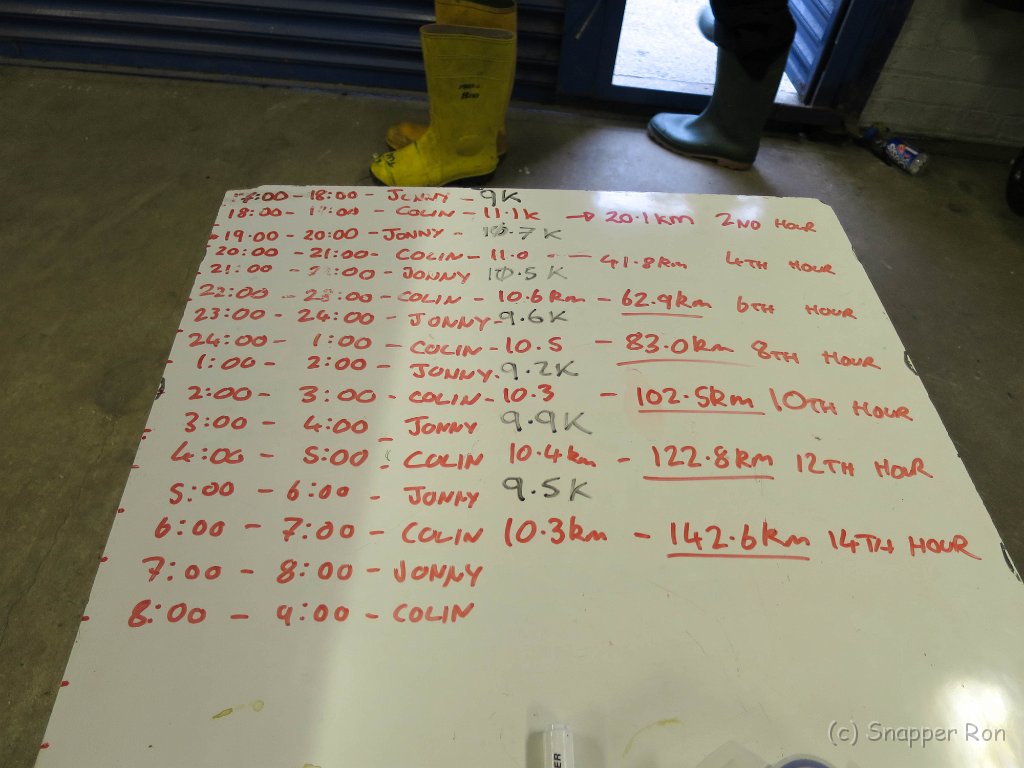 :00 - 18:00 - JONNY - 9K
18:00 - :00 - COLIN - 11.1K → 20.1KM 2ND HOUR
19:00 - 20:00 - JONNY - 10.7K
20:00 - 21:00 - COLIN - 11.0 - 41.8KM 4TH HOUR
21:00 - 22:00 - JONNY 10.5K
22:00 - 23:00 - COLIN - 10.6km - 62.9km 6TH HOUR
23:00 - 24:00 - JONNY - 9.6K
24:00 - 1:00 - COLIN - 10.5 - 83.0km 8TH HOUR
1:00 - 2:00 - JONNY. 9.2K
2:00 - 3:00 - COLIN - 10.3 - 102.5km 10TH HOUR
3:00 - 4:00 - JONNY 9.9K
4:00 - 5:00 - COLIN 10.4km - 122.8km 12TH HOUR
5:00 - 6:00 - JONNY 9.5K
6:00 - 7:00 - COLIN 10.3km - 142.6km 14TH HOUR
7:00 - 8:00 - JONNY
8:00 - 9:00 - COLIN
(c) Snapper Ron